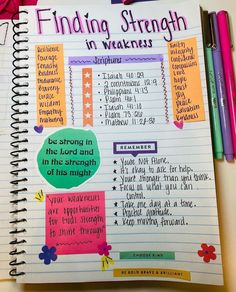 Finding Strength
in weakness
Resilience
Courage
Tenacity
Kindness
Endurance
Bravery
Grace
Wisdom
Empathy
Scriptures
Isaiah 40:29
2 Corinthians 12:9
Philippians 4:13
Isaiah 41:10
Psalm 73:26
Matthew 11:28-30
Faith
Integrity
Compassion
Love
Hope
Trust
Joy
Peace
Salvation
Kindness
be strong in
the Lord and
in the strength
of his might
REMEMBER
You're not alone.
It's okay to ask for help.
You're stronger than you think.
Focus on what you can
control.
Take one day at a time.
Practice gratitude.
Keep moving forward.
Your weakness
are opportunities
for God's strength
to shine through!
CHOOSE KIND
BE BOLD BRAVE & BRILLIANT